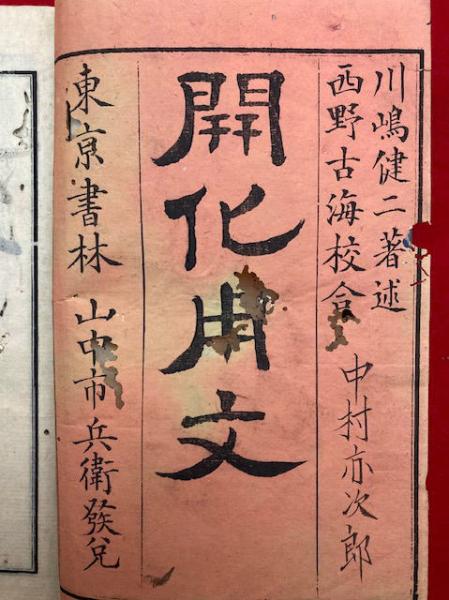 川嶋健二著述
西野古海校合
中村亦次郎
開化用文
東京書林 山中市兵衛發兌